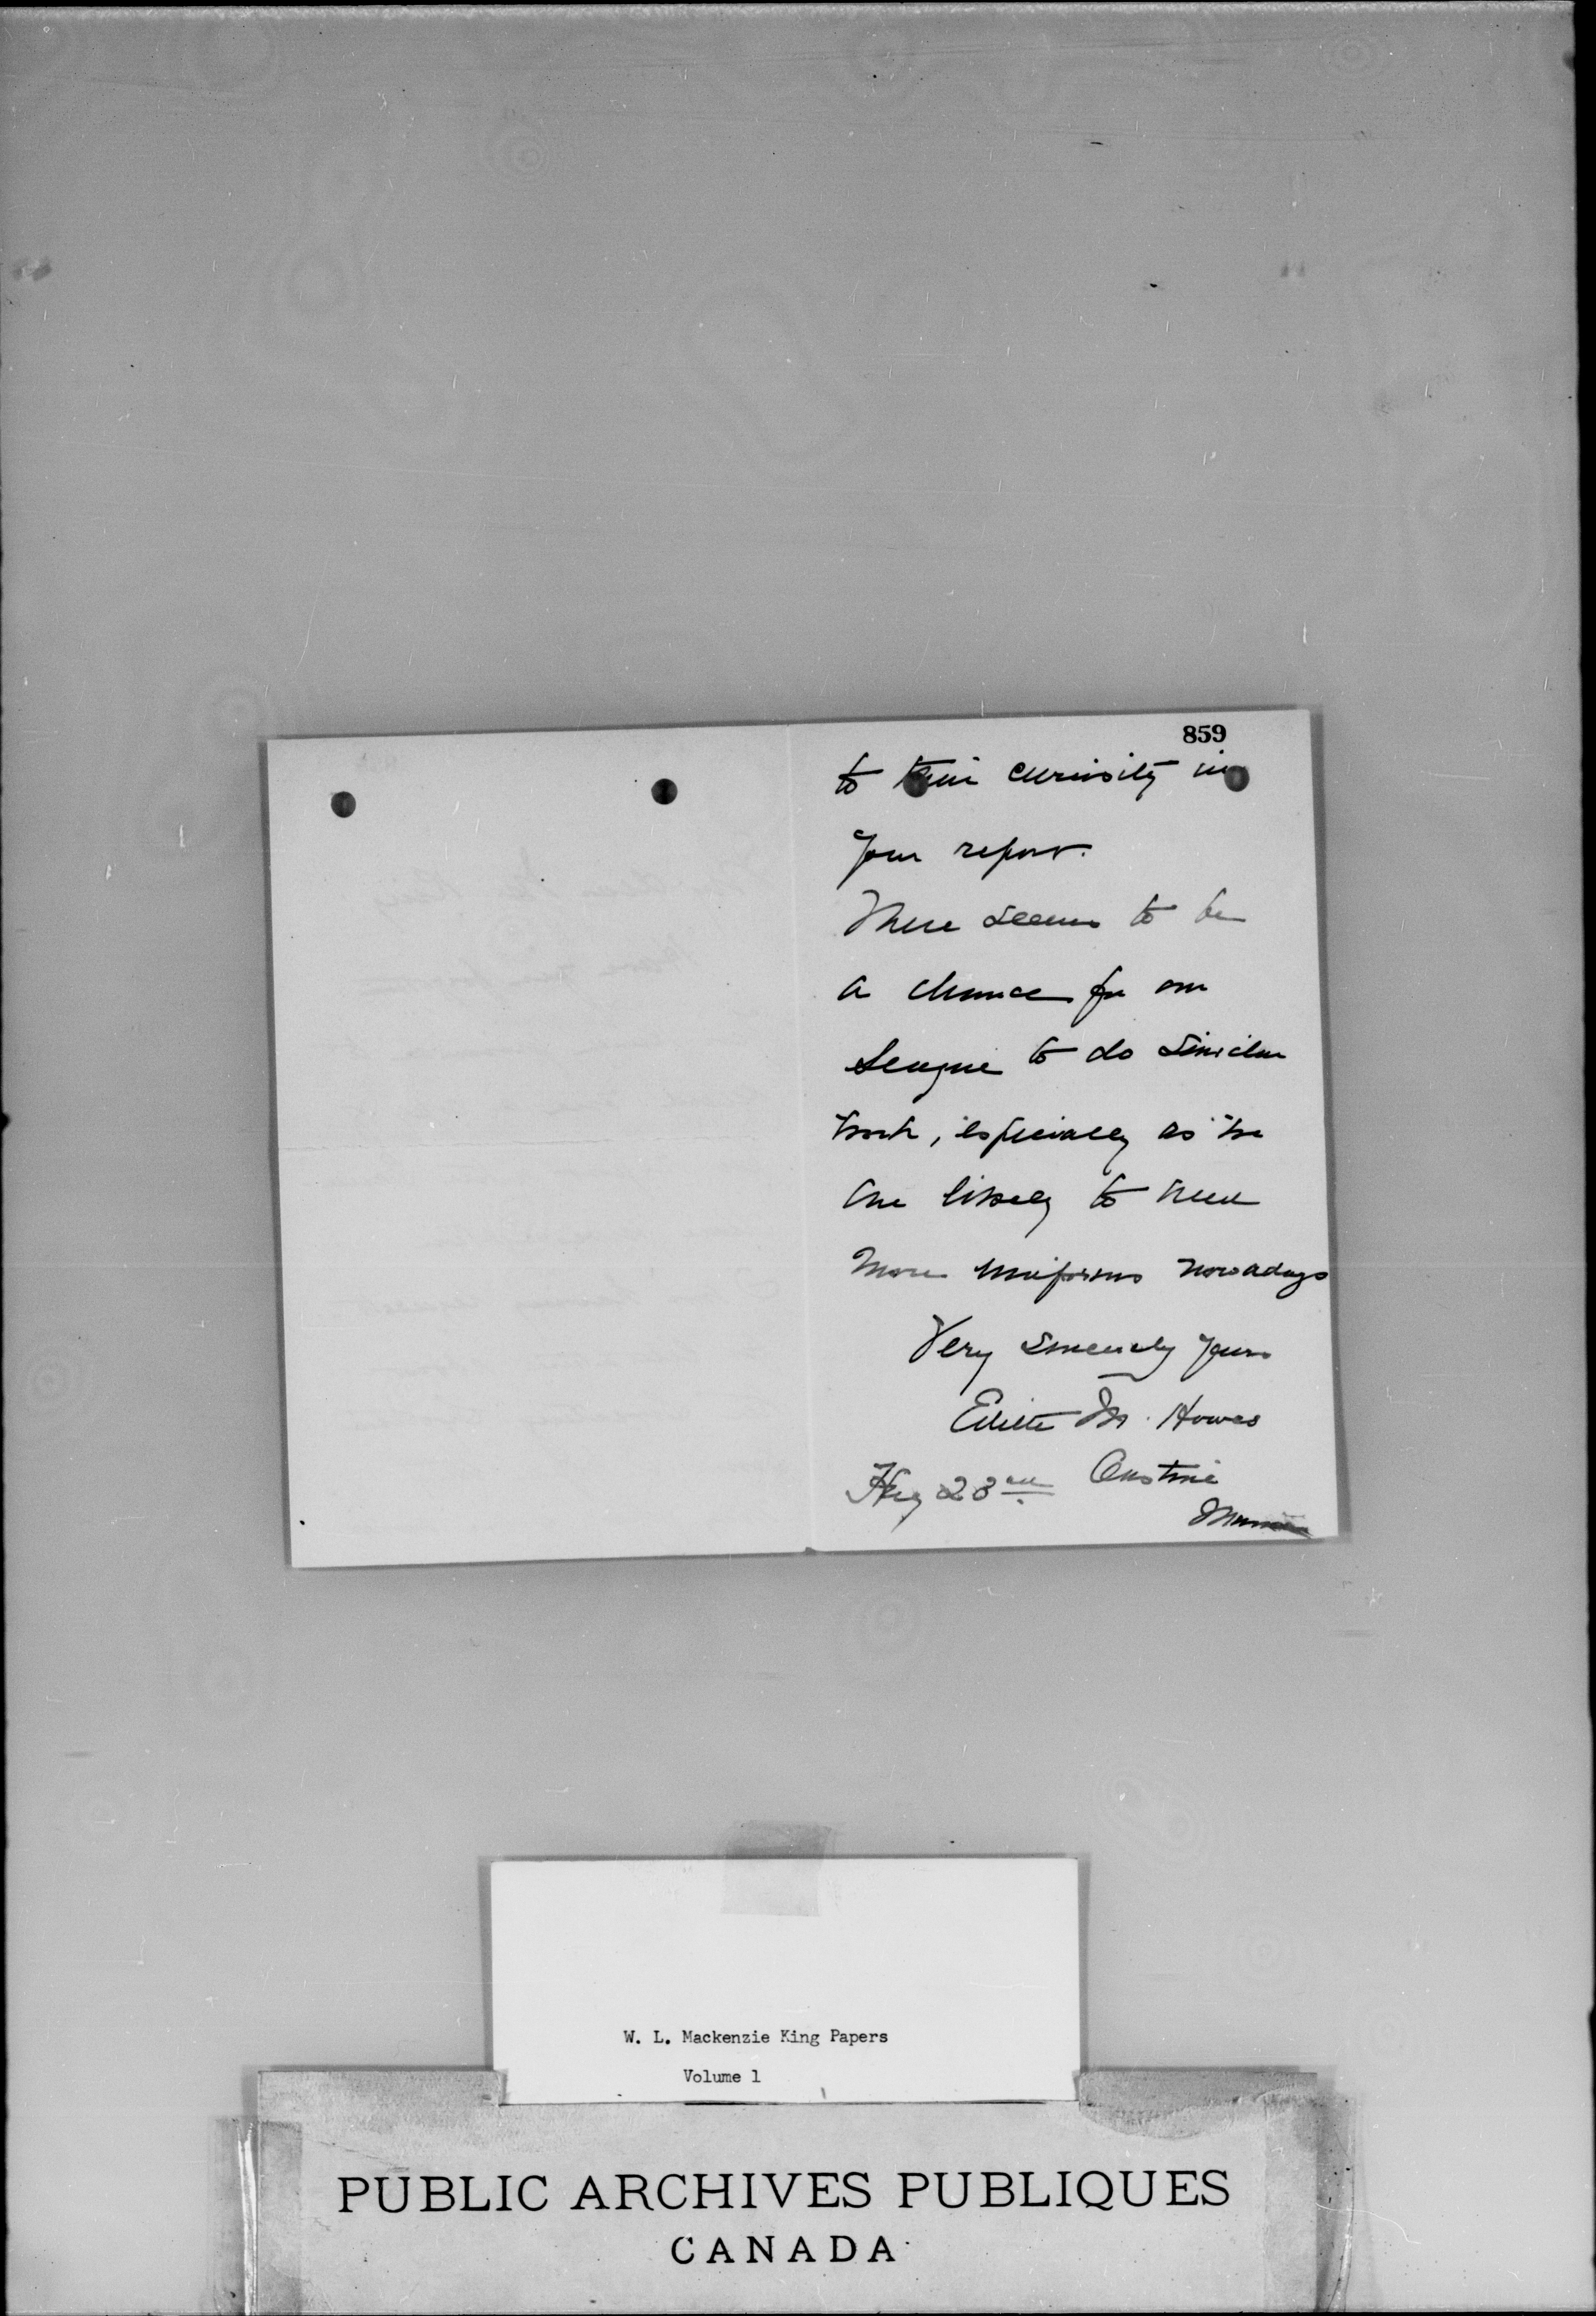 859
to their curiosity in
your report.
There seems to be
a chance for our
League to do similar
work, especially as we
are likely to need
more uniforms nowadays
Very sincerely yours
Edith M. Howes
Aug 23rd
W. L. Mackenzie King Papers
Volume 1
PUBLIC ARCHIVES PUBLIQUES
CANADA